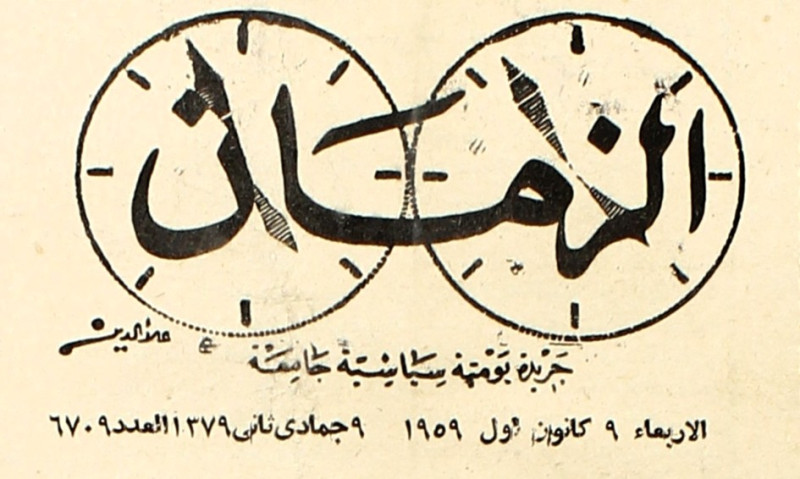 الزمان
علاء الدين
جريدة يومية سياسية جامعة
الاربعاء ٩ كانون اول ١٩٥٩ ٩ جمادى ثاني ١٣٧٩ العدد ٦٧٠٩